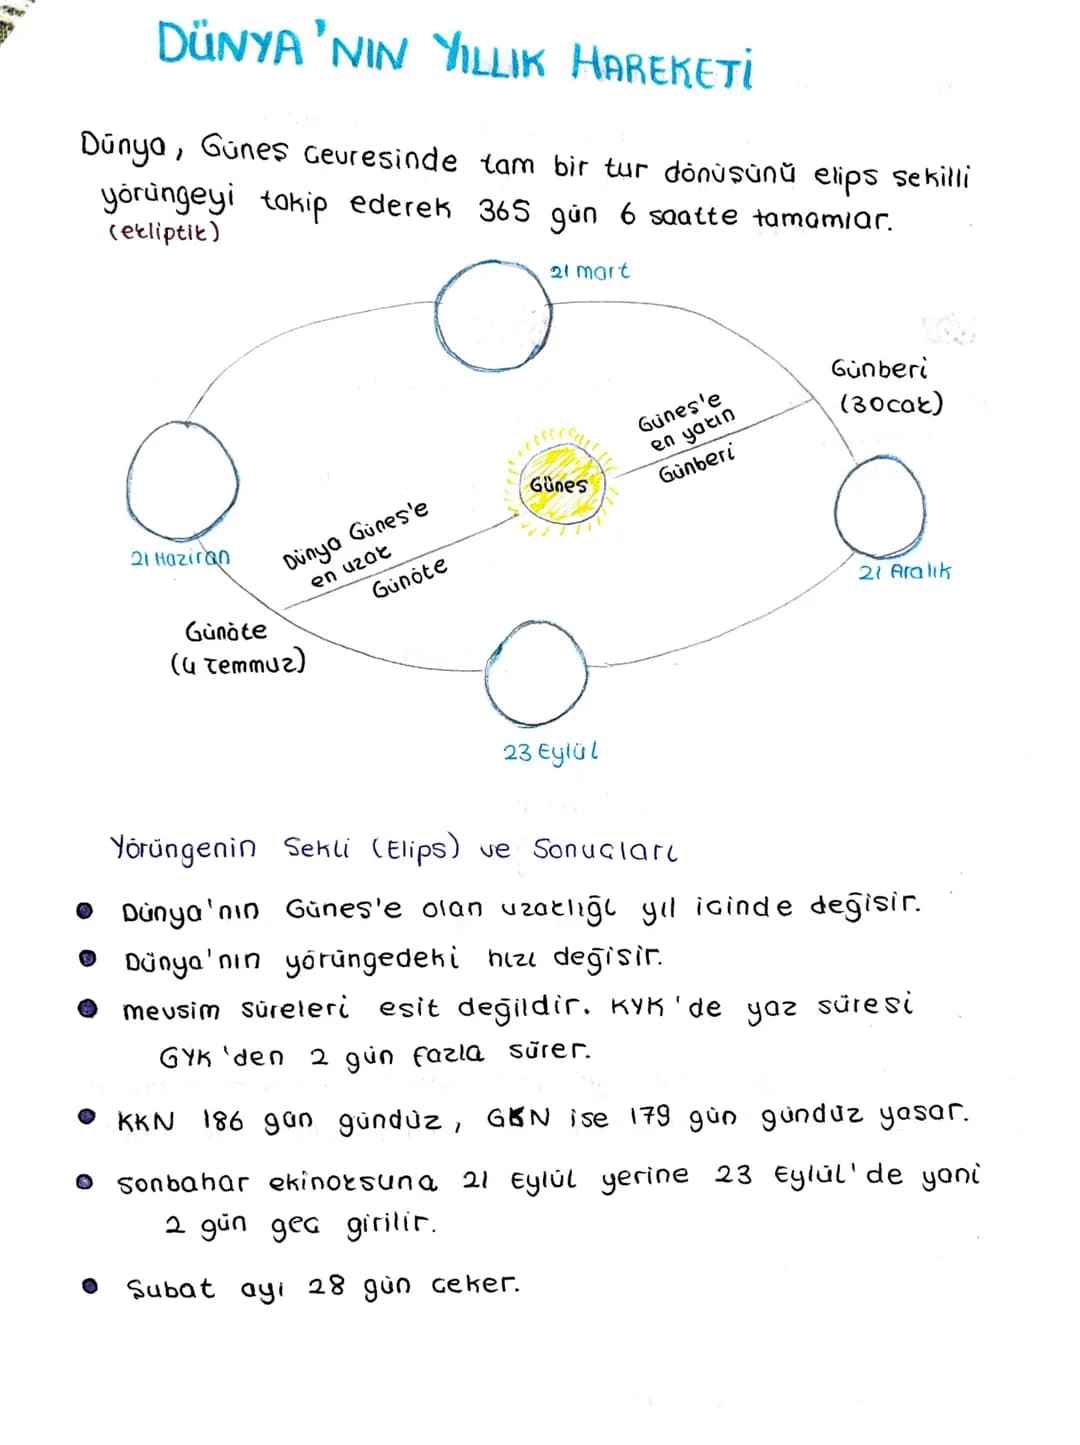 DÜNYA'NIN YILLIK HAREKETİ
Dünya, Güneş Çevresinde tam bir tur dönüşünü elips şekilli
yörüngeyi takip ederek 365 gün 6 saatte tamamlar.
(ekliptik)
21 mart
Günberi
(3 Ocak)
Güneş'e
en yakın
Günberi
Güneş
Dünya Güneş'e
en uzak
Günöte
21 Haziran
21 Aralık
Günöte
(4 Temmuz)
23 Eylül
Yörüngenin Şekli (Elips) ve Sonuçları
Dünya'nın Güneş'e olan uzaklığı yıl içinde değişir.
Dünya'nın yörüngedeki hızı değişir.
mevsim süreleri eşit değildir. KYK'de yaz süresi
GYK'den 2 gün fazla sürer.
KKN 186 gün gündüz, GKN ise 179 gün gündüz yaşar.
Sonbahar ekinoksuna 21 Eylül yerine 23 Eylül'de yani
2 gün geç girilir.
Şubat ayı 28 gün çeker.